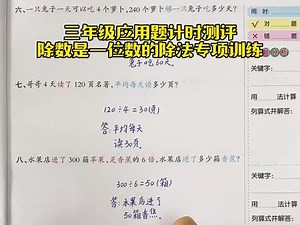 六、一只兔子一天可以吃4个萝卜，240个萝卜够一只兔子吃多少天？
三年级应用题计时测评
除数是一位数的除法专项训练
兔子吃60天。
七、哥哥4天读了120页名著，平均每天读多少页？
120÷4=30(页)
答：平均每天
读30页。
八、水果店进了300箱苹果，是香蕉的6倍，水果店进了多少箱香蕉？
300÷6=50(箱)
答：水果店进了
50箱香蕉。
用时
关键字：
用 法计算
列算式并解答：
关键字：
用 法计算
列算式并解答：